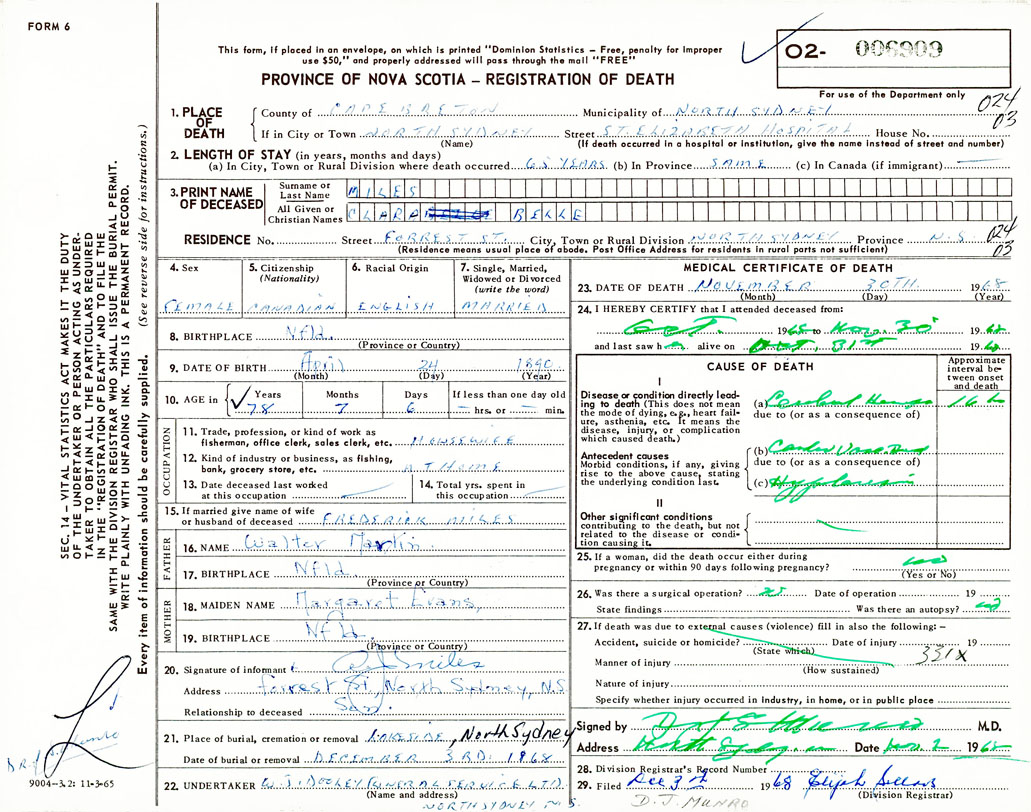 FORM 6
This form, if placed in an envelope, on which is printed "Dominion Statistics – Free, penalty for improper
use $50," and properly addressed will pass through the mail "FREE"
O2- 006909
PROVINCE OF NOVA SCOTIA – REGISTRATION OF DEATH
For use of the Department only
024
03
1. PLACE OF DEATH
County of CAPE BRETON Municipality of NORTH SYDNEY
If in City or Town NORTH SYDNEY Street ST. ELIZABETH HOSPITAL House No.
(Name) (If death occurred in a hospital or institution, give the name instead of street and number)
2. LENGTH OF STAY (in years, months and days)
(a) In City, Town or Rural Division where death occurred 65 YEARS (b) In Province SAME (c) In Canada (if immigrant)
3. PRINT NAME OF DECEASED
Surname or Last Name MILES
All Given or Christian Names CLARA BELLE
RESIDENCE No. Street FORREST ST. City, Town or Rural Division NORTH SYDNEY Province N.S.
(Residence means usual place of abode. Post Office Address for residents in rural parts not sufficient)
024
03
4. Sex
FEMALE
5. Citizenship
(Nationality)
CANADIAN
6. Racial Origin
ENGLISH
7. Single, Married,
Widowed or Divorced
(write the word)
MARRIED
8. BIRTHPLACE Nfld.
(Province or Country)
9. DATE OF BIRTH April 24 1890
(Month) (Day) (Year)
10. AGE in Years Months Days If less than one day old
78 7 6 hrs. or min.
OCCUPATION
11. Trade, profession, or kind of work as
fisherman, office clerk, sales clerk, etc. HOUSEWIFE
12. Kind of industry or business, as fishing,
bank, grocery store, etc. AT HOME
13. Date deceased last worked
at this occupation
14. Total yrs. spent in
this occupation
15. If married give name of wife
or husband of deceased FREDERICK MILES
FATHER
16. NAME Walter Martin
17. BIRTHPLACE Nfld.
(Province or Country)
MOTHER
18. MAIDEN NAME Margaret Evans,
19. BIRTHPLACE Nfld.
(Province or Country)
20. Signature of informant Miles
Address Forrest St, North Sydney, N.S
Relationship to deceased Son
21. Place of burial, cremation or removal LAKESIDE, North Sydney
Date of burial or removal DECEMBER 3RD. 1968
22. UNDERTAKER W.J. DOOLEY FUNERAL SERVICE LTD
(Name and address)
NORTH SYDNEY N.S.
MEDICAL CERTIFICATE OF DEATH
23. DATE OF DEATH NOVEMBER 30TH 1968
(Month) (Day) (Year)
24. I HEREBY CERTIFY that I attended deceased from:
Oct. 1968 to Nov. 30 1968
and last saw h alive on Oct. 31st 1968
CAUSE OF DEATH
Approximate
interval be-
tween onset
and death
I
Disease or condition directly lead-
ing to death (This does not mean
the mode of dying, e.g., heart fail-
ure, asthenia, etc. It means the
disease, injury, or complication
which caused death.)
(a)
due to (or as a consequence of)
Antecedent causes
Morbid conditions, if any, giving
rise to the above cause, stating
the underlying condition last.
(b)
due to (or as a consequence of)
(c)
II
Other significant conditions
contributing to the death, but not
related to the disease or condi-
tion causing it.
25. If a woman, did the death occur either during
pregnancy or within 90 days following pregnancy?
(Yes or No)
26. Was there a surgical operation? no Date of operation 19
State findings Was there an autopsy? no
27. If death was due to external causes (violence) fill in also the following: –
Accident, suicide or homicide? Date of injury 19
(State which)
331X
Manner of injury
(How sustained)
Nature of injury
Specify whether injury occurred in industry, in home, or in public place
Signed by M.D.
Address North Sydney Date Dec. 2 1968
28. Division Registrar's Record Number
29. Filed Dec 3rd 1968 Elijah
(Division Registrar)
D. J. MUNRO
SEC. 14 – VITAL STATISTICS ACT MAKES IT THE DUTY
OF THE UNDERTAKER OR PERSON ACTING AS UNDER-
TAKER TO OBTAIN ALL THE PARTICULARS REQUIRED
IN THE "REGISTRATION OF DEATH" AND TO FILE THE
SAME WITH THE DIVISION REGISTRAR WHO SHALL ISSUE THE BURIAL PERMIT.
WRITE PLAINLY WITH UNFADING INK. THIS IS A PERMANENT RECORD.
Every item of information should be carefully supplied. (See reverse side for instructions.)
9004-3.2: 11-3-65